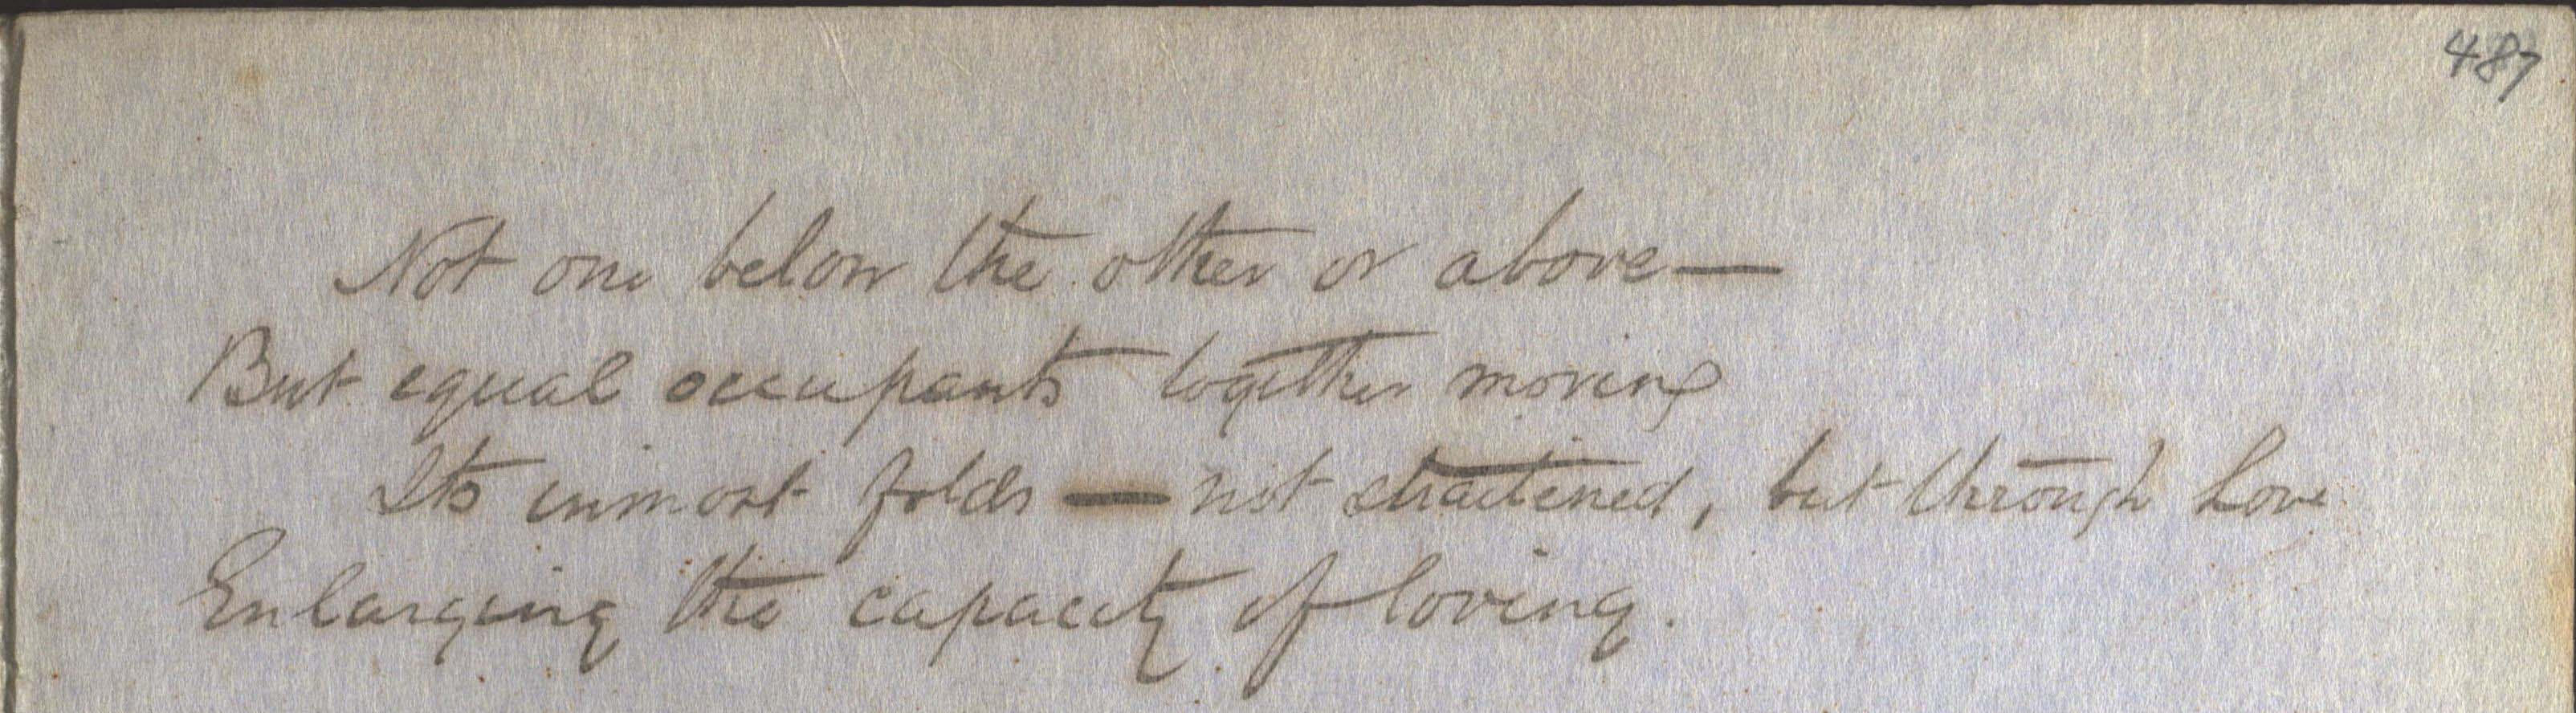 487
Not one below the other or above —
But equal occupants together moving
Its inmost folds — not straitened, but through Love
Enlarging the capacity of loving.